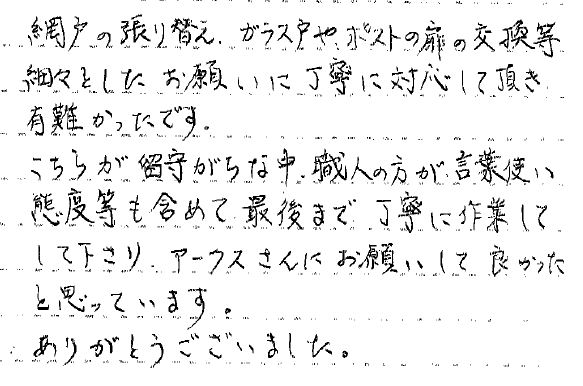 網戸の張り替え、ガラス戸や、ポストの扉の交換等
細々としたお願いに丁寧に対応して頂き
有難かったです。
こちらが留守がちな中、職人の方が言葉使い
態度等も含めて最後まで丁寧に作業して
して下さり、アークスさんにお願いして良かった
と思っています。
ありがとうございました。